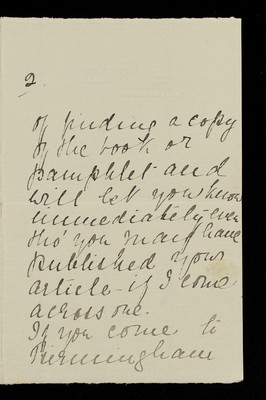 2.
of finding a copy
of the book or
pamphlet and
will let you know
immediately even
tho' you may have
published your
article - if I come
across one.
If you come to
Birmingham